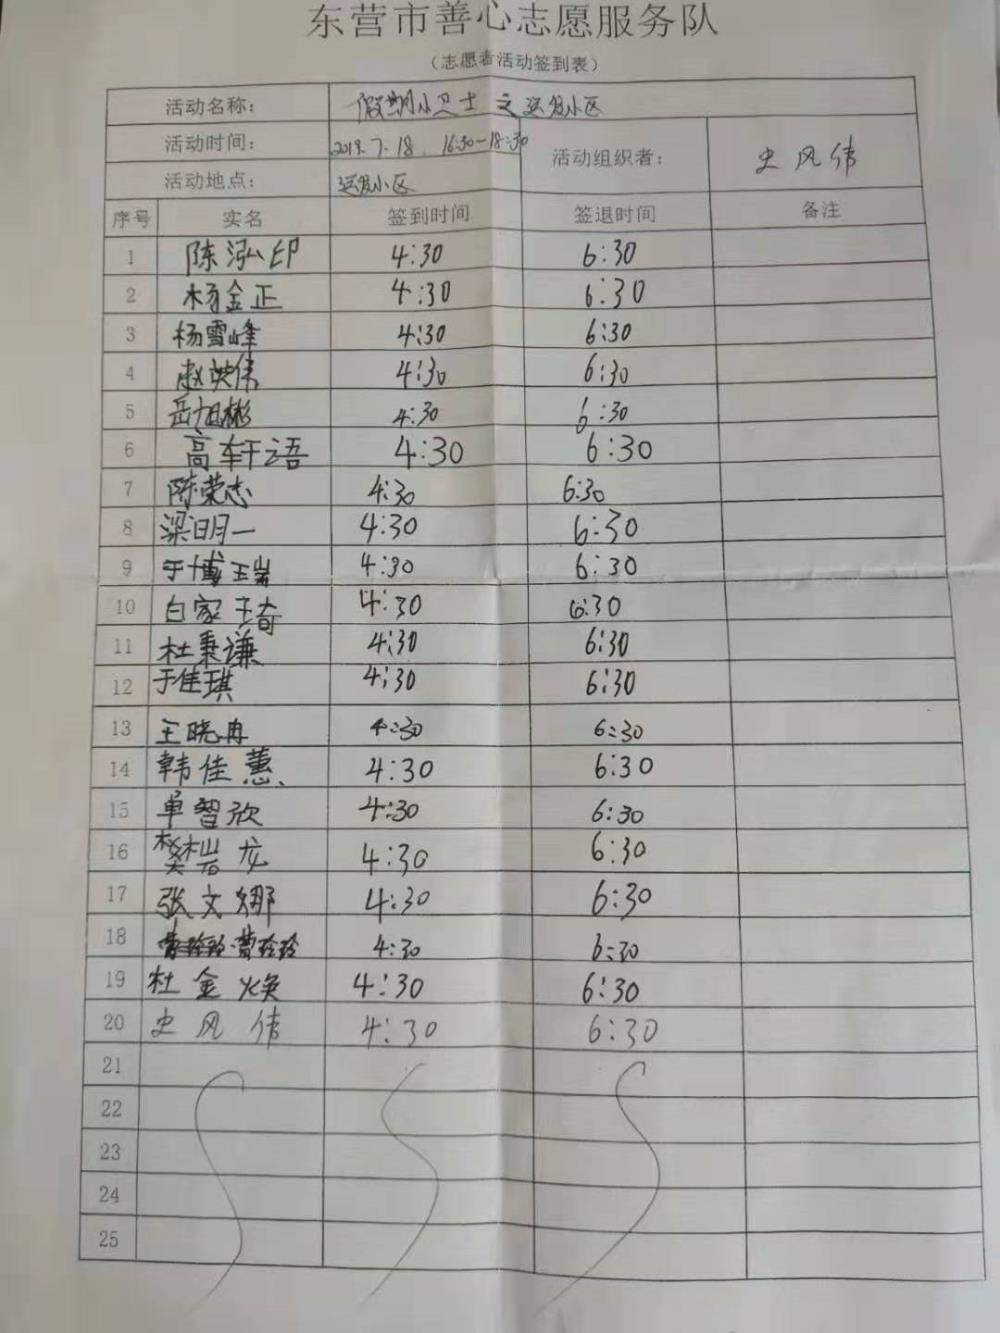 东营市善心志愿服务队
（志愿者活动签到表）
活动名称： 假期小卫士之运发小区
活动时间： 2019.7.18. 16:30-18:30 活动组织者： 史风伟
活动地点： 运发小区
序号 实名 签到时间 签退时间 备注
1 陈泓印 4:30 6:30
2 杨金正 4:30 6:30
3 杨雪峰 4:30 6:30
4 赵洪伟 4:30 6:30
5 岳旭彬 4:30 6:30
6 高轩语 4:30 6:30
7 陈荣志 4:30 6:30
8 梁明一 4:30 6:30
9 于博 4:30 6:30
10 白家琦 4:30 6:30
11 杜秉谦 4:30 6:30
12 于佳琪 4:30 6:30
13 王晓冉 4:30 6:30
14 韩佳蕙 4:30 6:30
15 单智欣 4:30 6:30
16 樊岩龙 4:30 6:30
17 张文娜 4:30 6:30
18 曹玲玲 4:30 6:30
19 杜金焕 4:30 6:30
20 史风伟 4:30 6:30
21
22
23
24
25